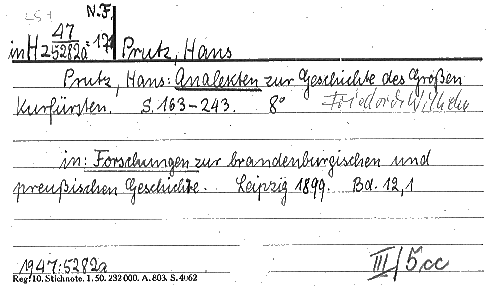 N.F.
in Hz 47/5282a =12,1 Prutz, Hans
Prutz, Hans: Analekten zur Geschichte des Großen
Kurfürsten. S. 163-243. 8° Friedrich Wilhelm
in: Forschungen zur brandenburgischen und
preußischen Geschichte. Leipzig 1899. Bd. 12,1
1947:5282a
III/5cc
Reg. 10. Stichnote. 1. 50. 232 000. A. 803. S. 4062